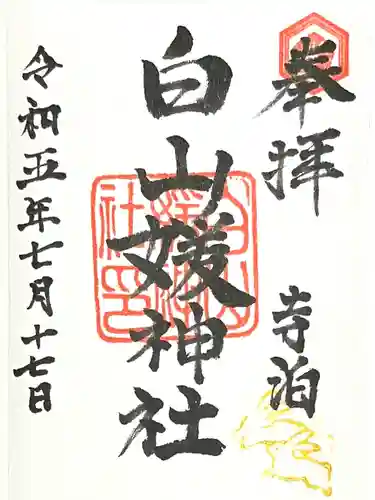 奉拝
寺泊
白山媛神社
令和五年七月十七日